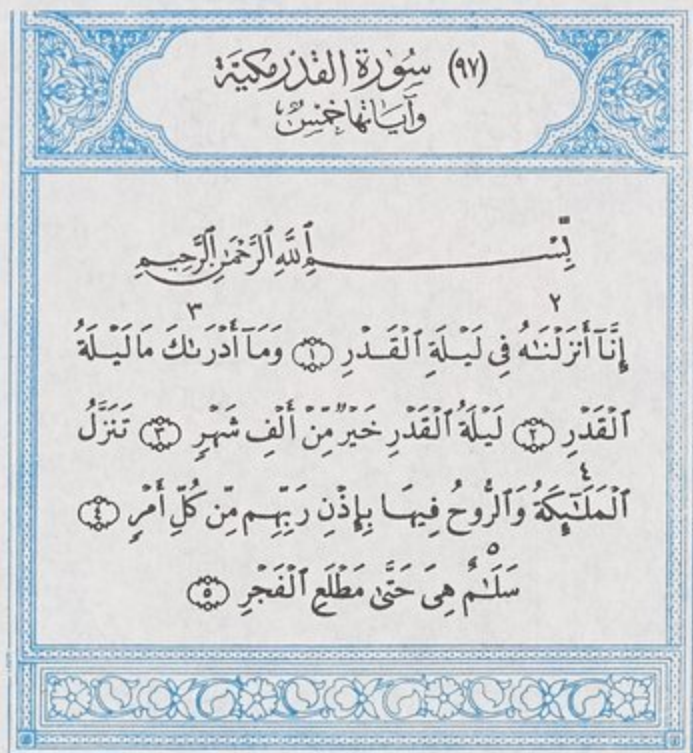 (٩٧) سُورَة القَدْر مَكيَّة
وَآيَاتهَا خَمْسٌ
بِّسْمِ ٱللَّهِ ٱلرَّحْمَٰنِ ٱلرَّحِيمِ
٢ ٣
إِنَّآ أَنزَلْنَٰهُ فِى لَيْلَةِ ٱلْقَدْرِ ١ وَمَآ أَدْرَىٰكَ مَا لَيْلَةُ
ٱلْقَدْرِ ٢ لَيْلَةُ ٱلْقَدْرِ خَيْرٌ مِّنْ أَلْفِ شَهْرٍ ٣ تَنَزَّلُ
٤
ٱلْمَلَٰٓئِكَةُ وَٱلرُّوحُ فِيهَا بِإِذْنِ رَبِّهِم مِّن كُلِّ أَمْرٍ ٤
٥
سَلَٰمٌ هِىَ حَتَّىٰ مَطْلَعِ ٱلْفَجْرِ ٥